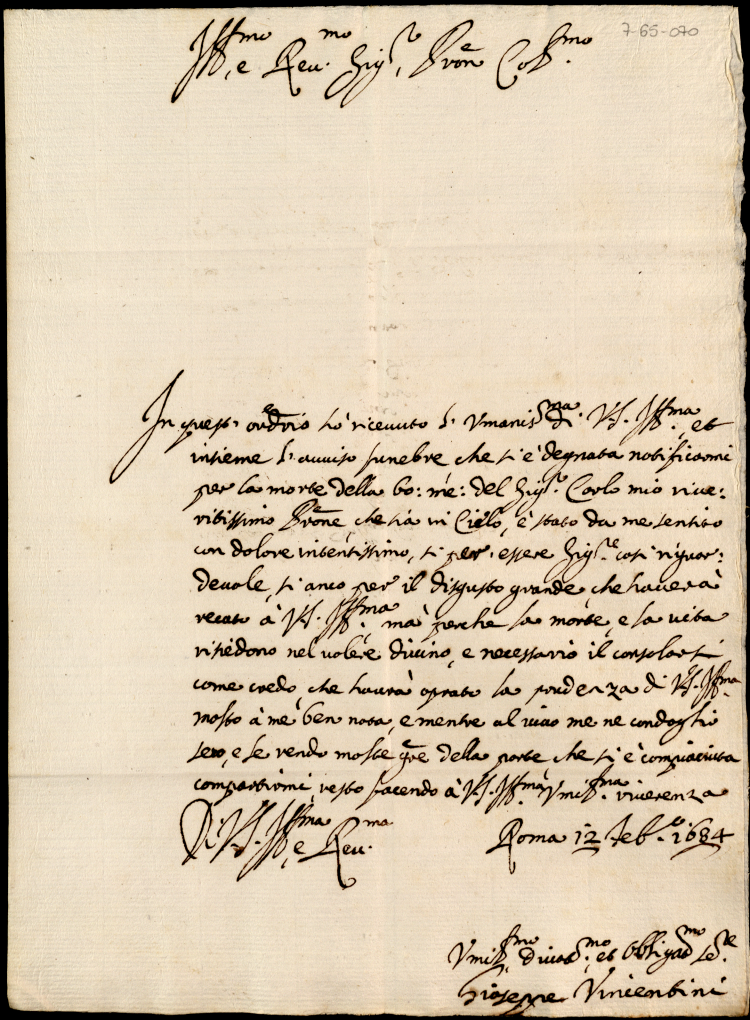 7-65-070
Ill.mo e Reu.mo Sig.re Prone Col.mo
In quest' ordrio hò riceuuto l' Vmaniss.ma di V.S. Ill.ma, et
insieme l' auuiso funebre che si è degnata notificarmi
per la morte della bo: me: del Sig.re Carlo mio riue:
ritissimo Prone che sia in Cielo, è stato da me sentito
con dolore intentissimo, si per essere Sig.re così riguar:
deuole, si anco per il disgusto grande che hauerà
recato à V.S. Ill.ma, mà perche la morte, e la uita
risiedono nel uolere diuino, e necessario il consolarsi
come credo, che haurà oprato la prudenza di V.S. Ill.ma
molto à me ben nota, e mentre al uiuo me ne condoglio
seco, e le rendo molte gre della parte che si è compiaciuta
compartirmi, resto facendo à V.S. Ill.ma Vmil.ma riuerenza
Di V.S. Ill.ma e Reu.ma
Roma 12 Feb.o 1684
Vmil.mo diuot.mo et Obbligat.mo Se.re
Gioseppe Vincentini